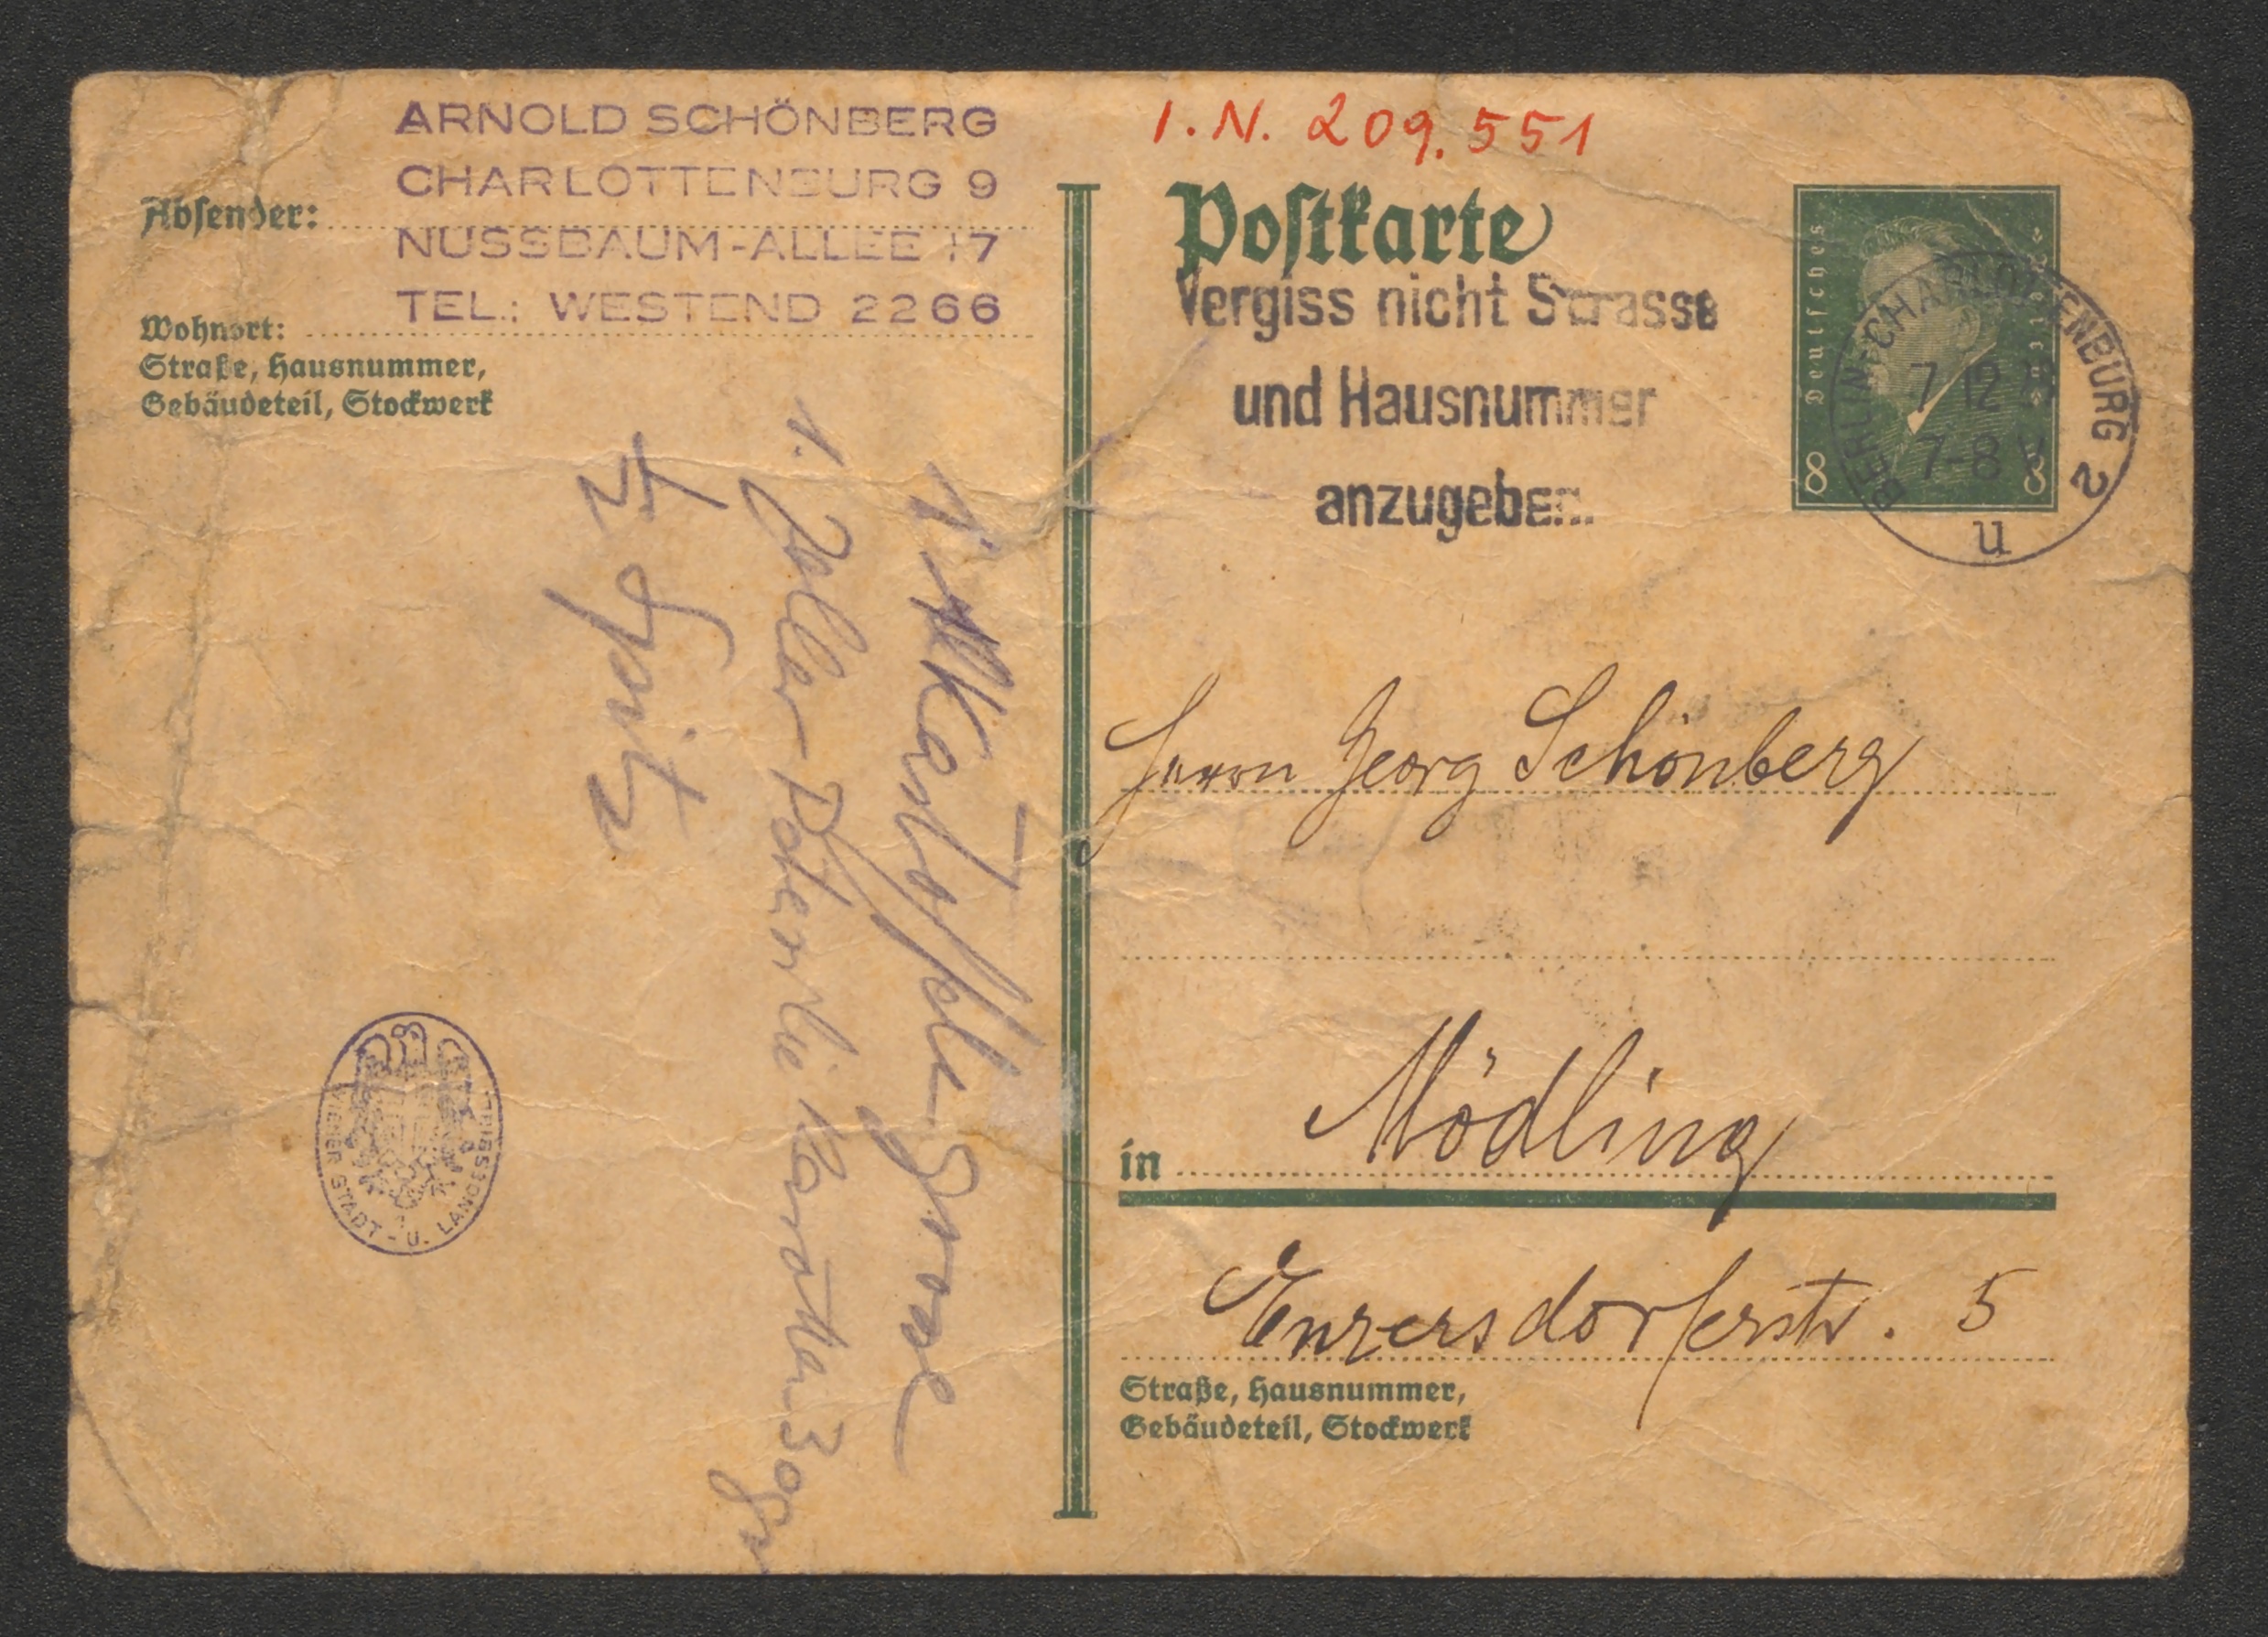 ARNOLD SCHÖNBERG
CHARLOTTENBURG 9
Absender:
NUSSBAUM-ALLEE 17
TEL.: WESTEND 2266
Wohnort:
Straße, Hausnummer,
Gebäudeteil, Stockwerk
1 Kartoffel grosse
1. Petersilie Karotten 30 gr
1/2 Spitz
WIENER STADT- U. LANDESBIBL.
I.N. 209.551
Postkarte
Vergiss nicht Strasse
und Hausnummer
anzugeben.
Deutsches
8 8
BERLIN-CHARLOTTENBURG 2
7 12
7-8 V
u
Herrn Georg Schönberg
in Mödling
Enzersdorferstr. 5
Straße, Hausnummer,
Gebäudeteil, Stockwerk